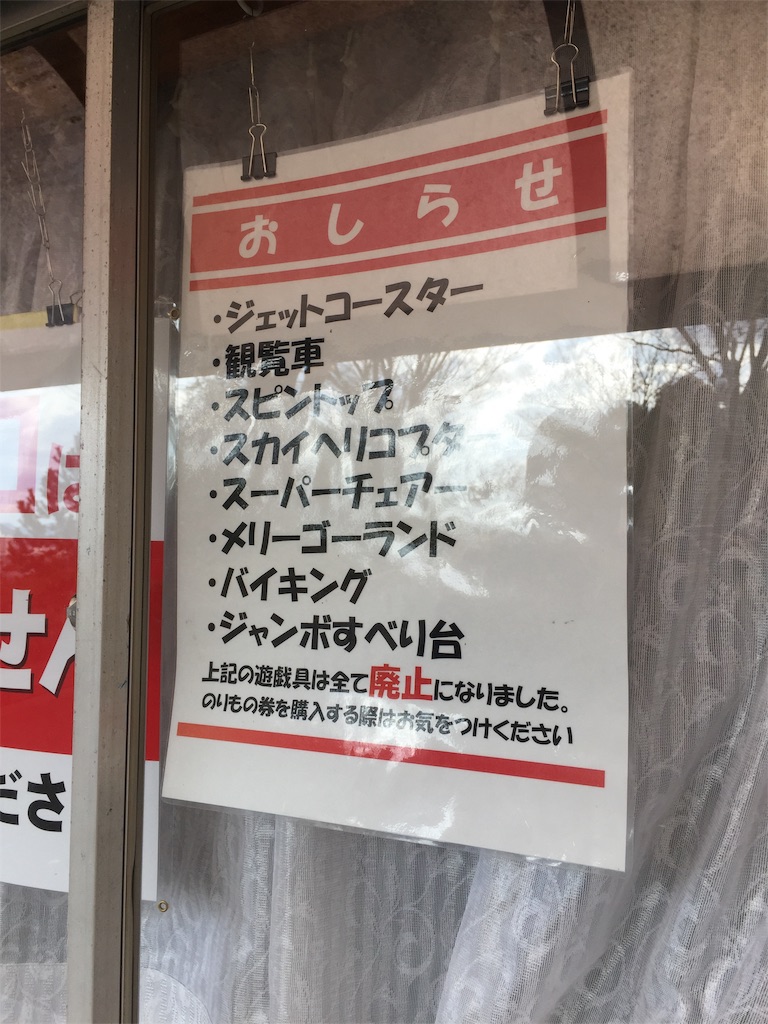 おしらせ
・ジェットコースター
・観覧車
・スピントップ
・スカイヘリコプタ
・スーパーチェアー
・メリーゴーランド
・バイキング
・ジャンボすべり台
上記の遊戯具は全て廃止になりました。
のりもの券を購入する際はお気をつけください
は
せん
ださ